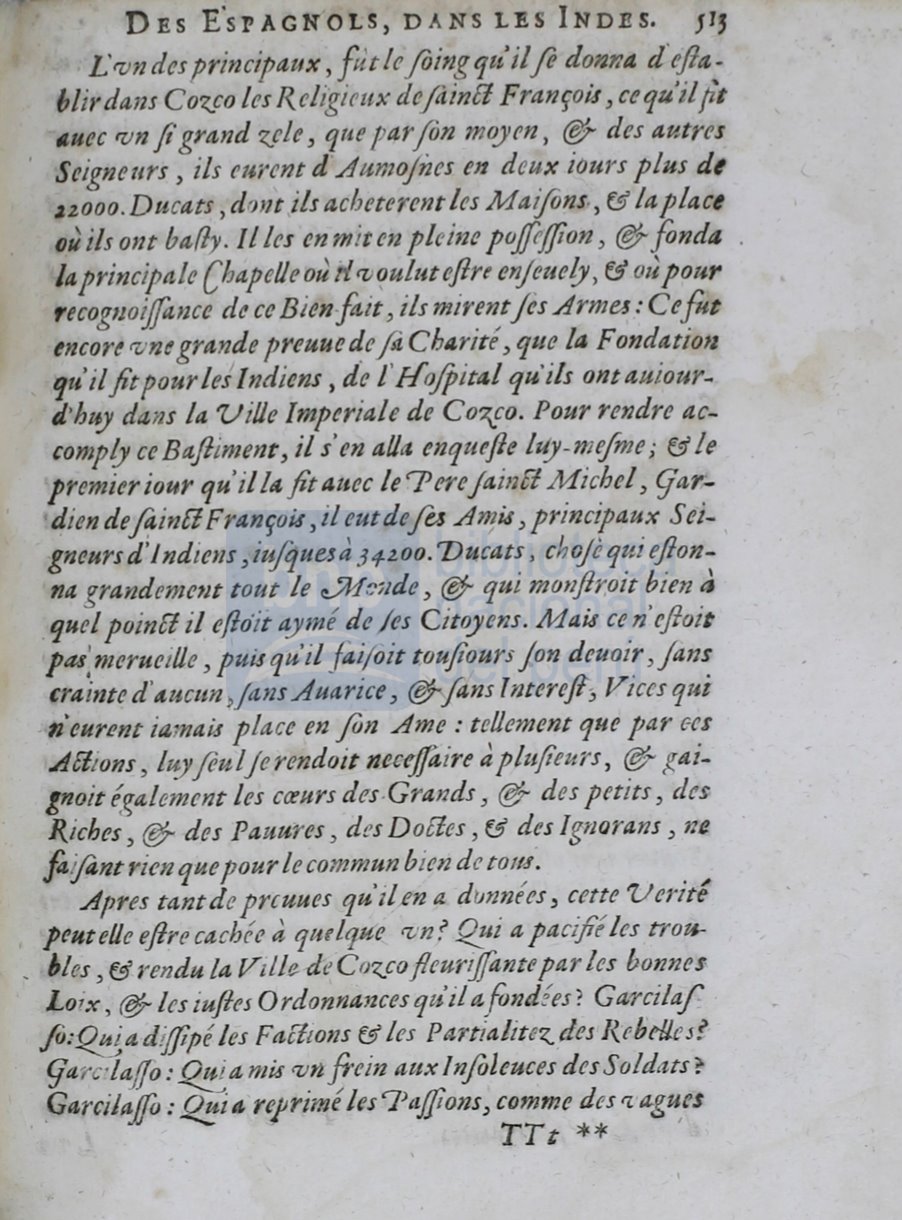 DES ESPAGNOLS, DANS LES INDES. 513
L'vn des principaux, fut le ſoing qu'il ſe donna d'eſta-
blir dans Cozco les Religieux de ſainct François, ce qu'il fit
auec vn ſi grand zele, que par ſon moyen, & des autres
Seigneurs, ils eurent d'Aumoſnes en deux iours plus de
22000. Ducats, dont ils acheterent les Maiſons, & la place
où ils ont baſty. Il les en mit en pleine poſſeſſion, & fonda
la principale Chapelle où il voulut eſtre enſeuely, & où pour
recognoiſſance de ce Bien-fait, ils mirent ſes Armes: Ce fut
encore vne grande preuue de ſa Charité, que la Fondation
qu'il fit pour les Indiens, de l'Hoſpital qu'ils ont auiour-
d'huy dans la Ville Imperiale de Cozco. Pour rendre ac-
comply ce Baſtiment, il s'en alla enqueſte luy-meſme; & le
premier iour qu'il la fit auec le Pere ſainct Michel, Gar-
dien de ſainct François, il eut de ſes Amis, principaux Sei-
gneurs d'Indiens, iuſques à 34200. Ducats, choſe qui eſton-
na grandement tout le Monde, & qui monſtroit bien à
quel poinct il eſtoit aymé de ſes Citoyens. Mais ce n'eſtoit
pas merueille, puis qu'il faiſoit touſiours ſon deuoir, ſans
crainte d'aucun, ſans Auarice, & ſans Intereſt, Vices qui
n'eurent iamais place en ſon Ame: tellement que par ces
Actions, luy ſeul ſe rendoit neceſſaire à pluſieurs, & gai-
gnoit également les cœurs des Grands, & des petits, des
Riches, & des Pauures, des Doctes, & des Ignorans, ne
faiſant rien que pour le commun bien de tous.
Apres tant de preuues qu'il en a données, cette Verité
peut elle eſtre cachée à quelque vn? Qui a pacifié les trou-
bles, & rendu la Ville de Cozco fleuriſſante par les bonnes
Loix, & les iuſtes Ordonnances qu'il a fondées? Garcilaſ-
ſo: Qui a diſſipé les Factions & les Partialitez des Rebelles?
Garcilaſſo: Qui a mis vn frein aux Inſolences des Soldats?
Garcilaſſo: Qui a reprimé les Paſſions, comme des vagues
TTt **